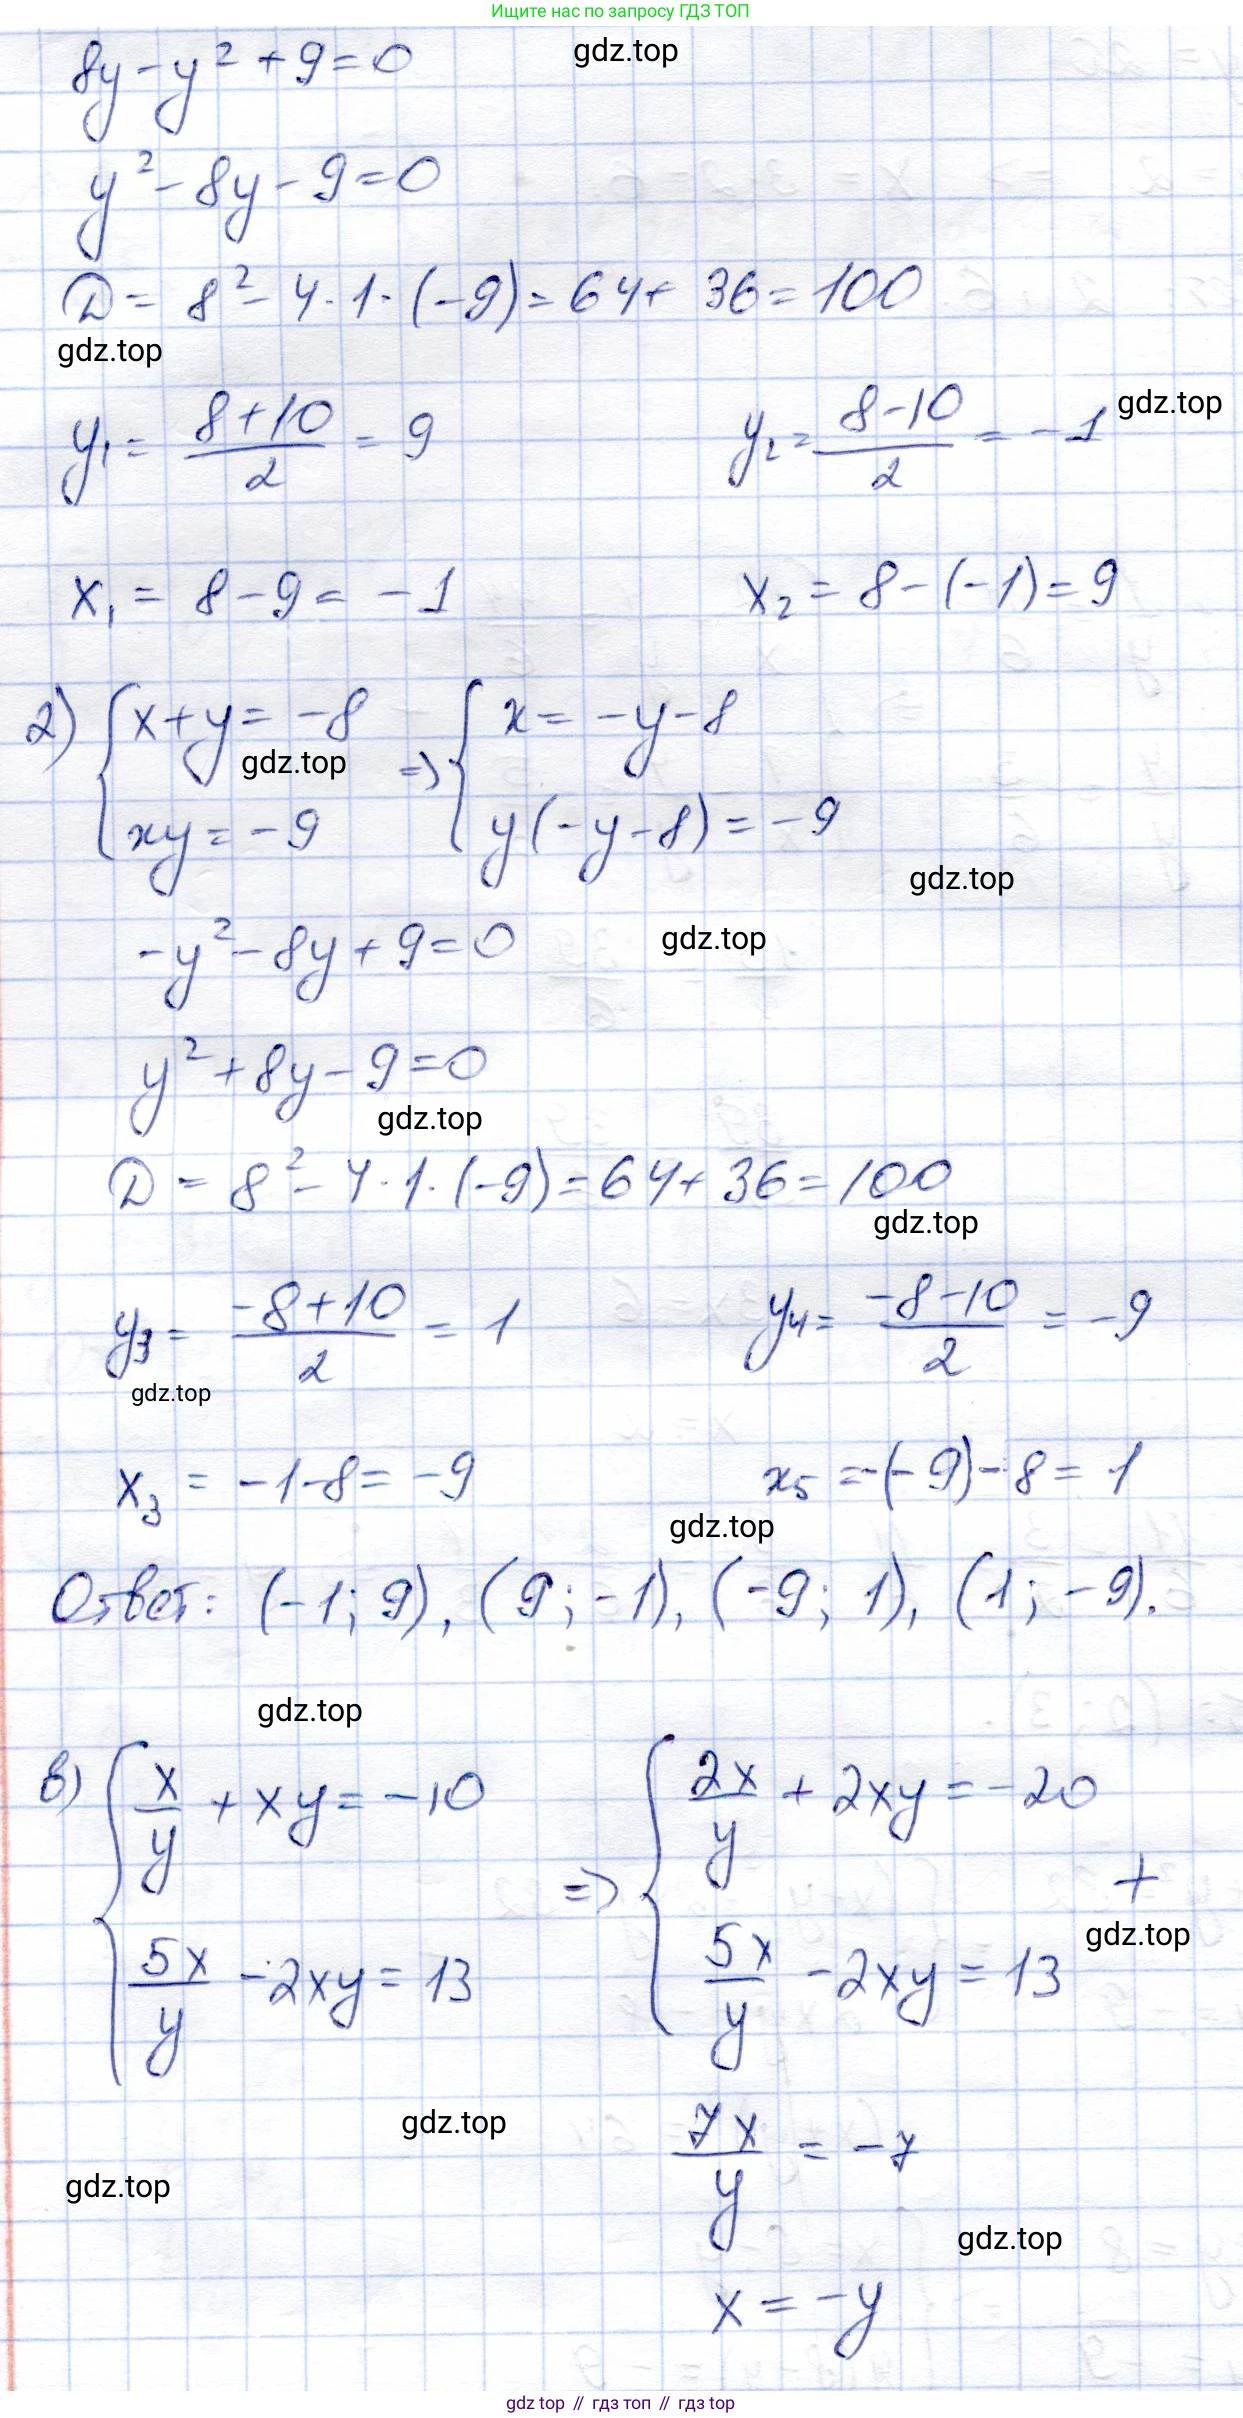 Ищите нас по запросу ГДЗ ТОП
8y - y² + 9 = 0
gdz.top
y² - 8y - 9 = 0
D = 8² - 4 · 1 · (-9) = 64 + 36 = 100
gdz.top
y₁ = (8+10)/2 = 9 y₂ = (8-10)/2 = -1
gdz.top
x₁ = 8 - 9 = -1 x₂ = 8 - (-1) = 9
2) { x + y = -8 => { x = -y - 8
gdz.top
xy = -9 y(-y-8) = -9
gdz.top
-y² - 8y + 9 = 0
gdz.top
y² + 8y - 9 = 0
gdz.top
D = 8² - 4 · 1 · (-9) = 64 + 36 = 100
gdz.top
y₃ = (-8+10)/2 = 1 y₄ = (-8-10)/2 = -9
gdz.top
x₃ = -1 - 8 = -9 x₅ = -(-9) - 8 = 1
gdz.top
Ответ: (-1; 9), (9; -1), (-9; 1), (1; -9).
gdz.top
в) { x/y + xy = -10 => { 2x/y + 2xy = -20
+
gdz.top
5x/y - 2xy = 13 5x/y - 2xy = 13
gdz.top
7x/y = -7
gdz.top
gdz.top
x = -y
gdz top // гдз топ // гдз top